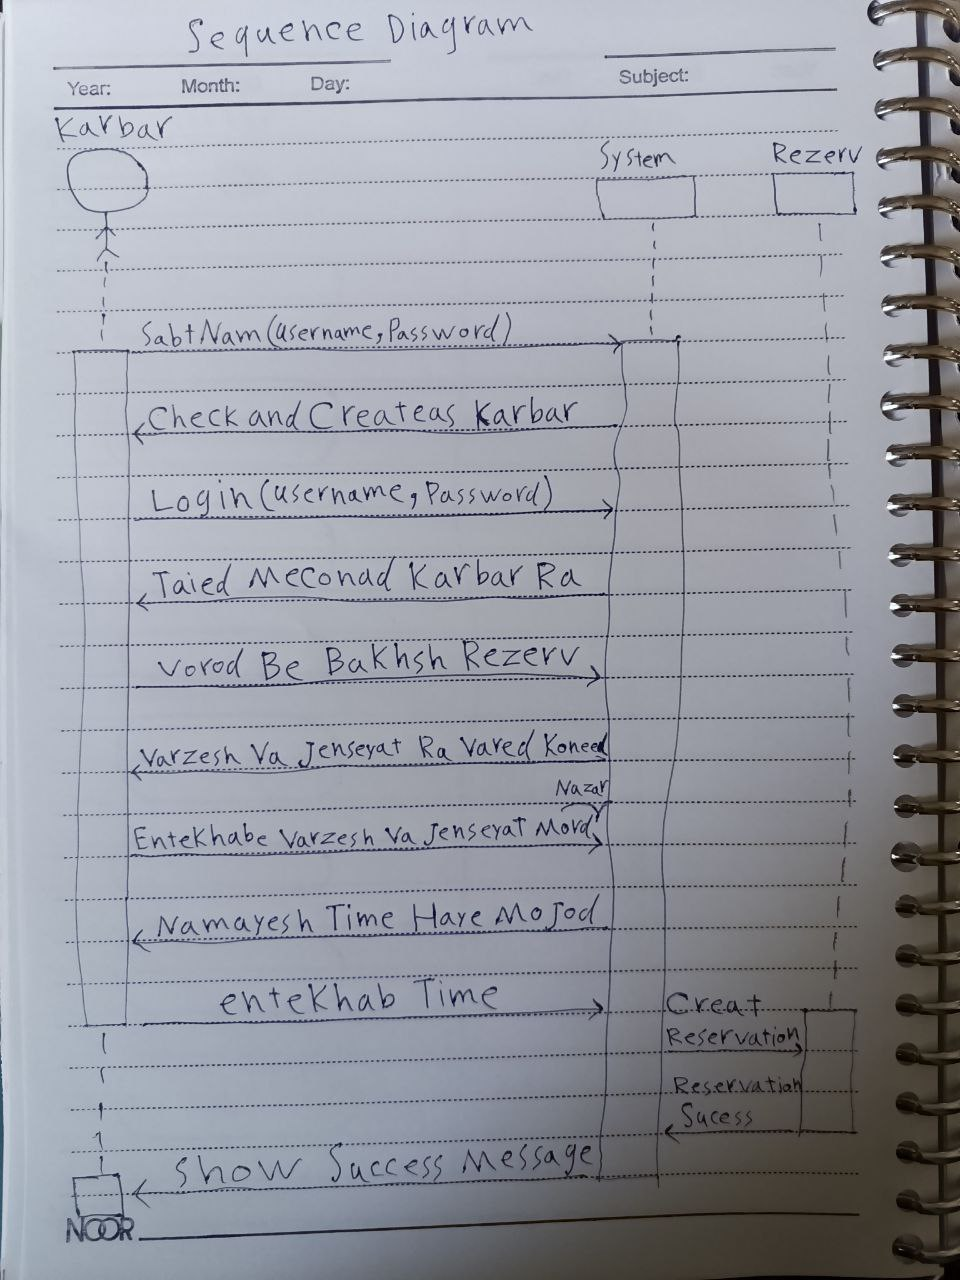 Sequence Diagram
Year: Month: Day: Subject:
Karbar
System Rezerv
SabtNam(username,Password)
Check and Createas Karbar
Login(username,Password)
Taied Meconad Karbar Ra
Vorod Be Bakhsh Rezerv
Varzesh Va Jenseyat Ra Vared Koneed
Nazar
Entekhabe Varzesh Va Jenseyat Mord
Namayesh Time Haye Mojod
entekhab Time
Creat
Reservation
Reservation
Sucess
Show Success Message
NOOR